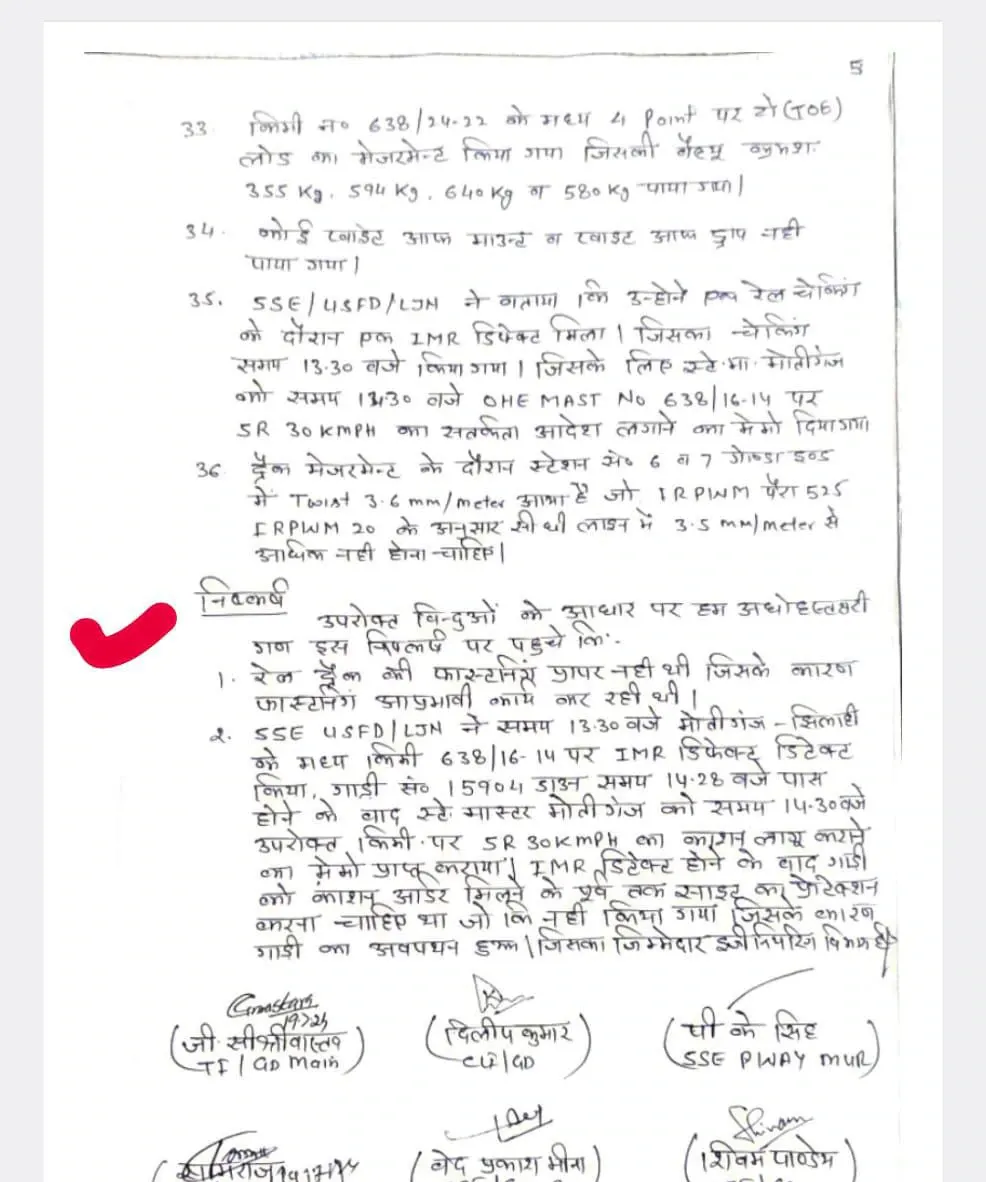 5
33. किमी न० 638/24-22 के मध्य 4 Point पर टो (TOE)
लोड का मेजरमेन्ट किया गया जिसकी वैल्यू क्रमशः
355 Kg, 594 Kg, 640 Kg व 580 Kg पाया गया।
34. कोई प्वाइंट आफ माउन्ट व प्वाइंट आफ ड्राप नही
पाया गया।
35. SSE/USFD/LJN ने बताया कि उन्होने रेल चेकिंग
के दौरान एक IMR डिफेक्ट मिला। जिसका चेकिंग
समय 13.30 बजे किया गया। जिसके लिए स्टे.मा. मोतीगंज
को समय बजे OHE MAST No 638/16-14 पर
SR 30 KMPH का सतर्कता आदेश लगाने का मेमो दिया गया
36. ट्रैक मेजरमेन्ट के दौरान स्टेशन सं० 6 व 7 गोण्डा इन्ड
में Twist 3.6 mm/meter आया है जो IRPWM पैरा 525
IRPWM 20 के अनुसार सीधी लाइन में 3.5 mm/meter से
अधिक नही होना चाहिए।
निष्कर्ष
उपरोक्त विन्दुओं के आधार पर हम अधोहस्ताक्षरी
गण इस निष्कर्ष पर पहुचे कि:-
1. रेल ट्रैक की फास्टनिंग प्रापर नही थी जिसके कारण
फास्टनिंग अप्रभावी कार्य कर रही थी।
2. SSE USFD/LJN ने समय 13.30 बजे मोतीगंज - झिलाही
के मध्य किमी 638/16-14 पर IMR डिफेक्ट डिटेक्ट
किया, गाड़ी सं० 15904 डाउन समय 14.28 बजे पास
होने के बाद स्टे. मास्टर मोतीगंज को समय 14.30 बजे
उपरोक्त किमी. पर SR 30KMPH का काशन लागू कराने
का मेमो प्राप्त कराया। IMR डिटेक्ट होने के बाद गाड़ी
को काशन आर्डर मिलने के पूर्व तक साइट का प्रोटेक्शन
करना चाहिए था जो कि नही किया गया जिसके कारण
गाड़ी का अवपथन हुआ। जिसका जिम्मेदार इंजीनियरिंग विभाग है।
19.7.24
(जी. सी श्रीवास्तव) (दिलीप कुमार) (पी के सिंह)
TI/GD Main CLI/GD SSE PWAY MUR
Shivam
(वेद प्रकाश मीना) (शिवम पाण्डेय)